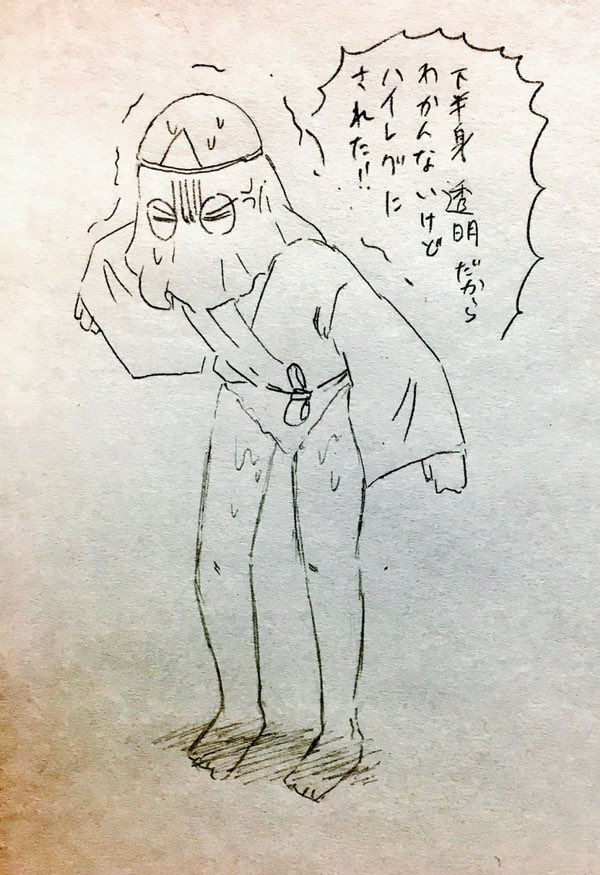 下半身 透明だから
わかんないけど
ハイレグに
された!!
プル